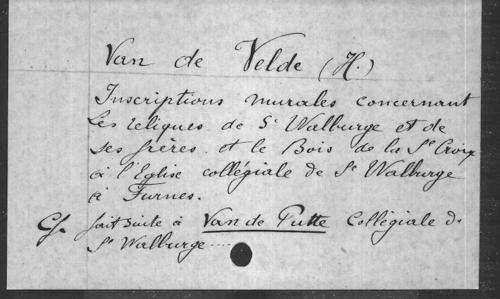 Van de Velde (H.)
Inscriptions murales concernant
les reliques de St Walburge et de
ses frères et le Bois de la Ste Croix
à l'Eglise collégiale de St Walburge
à Furnes.
Cf. fait suite à Van de Putte Collégiale de
St Walburge ....